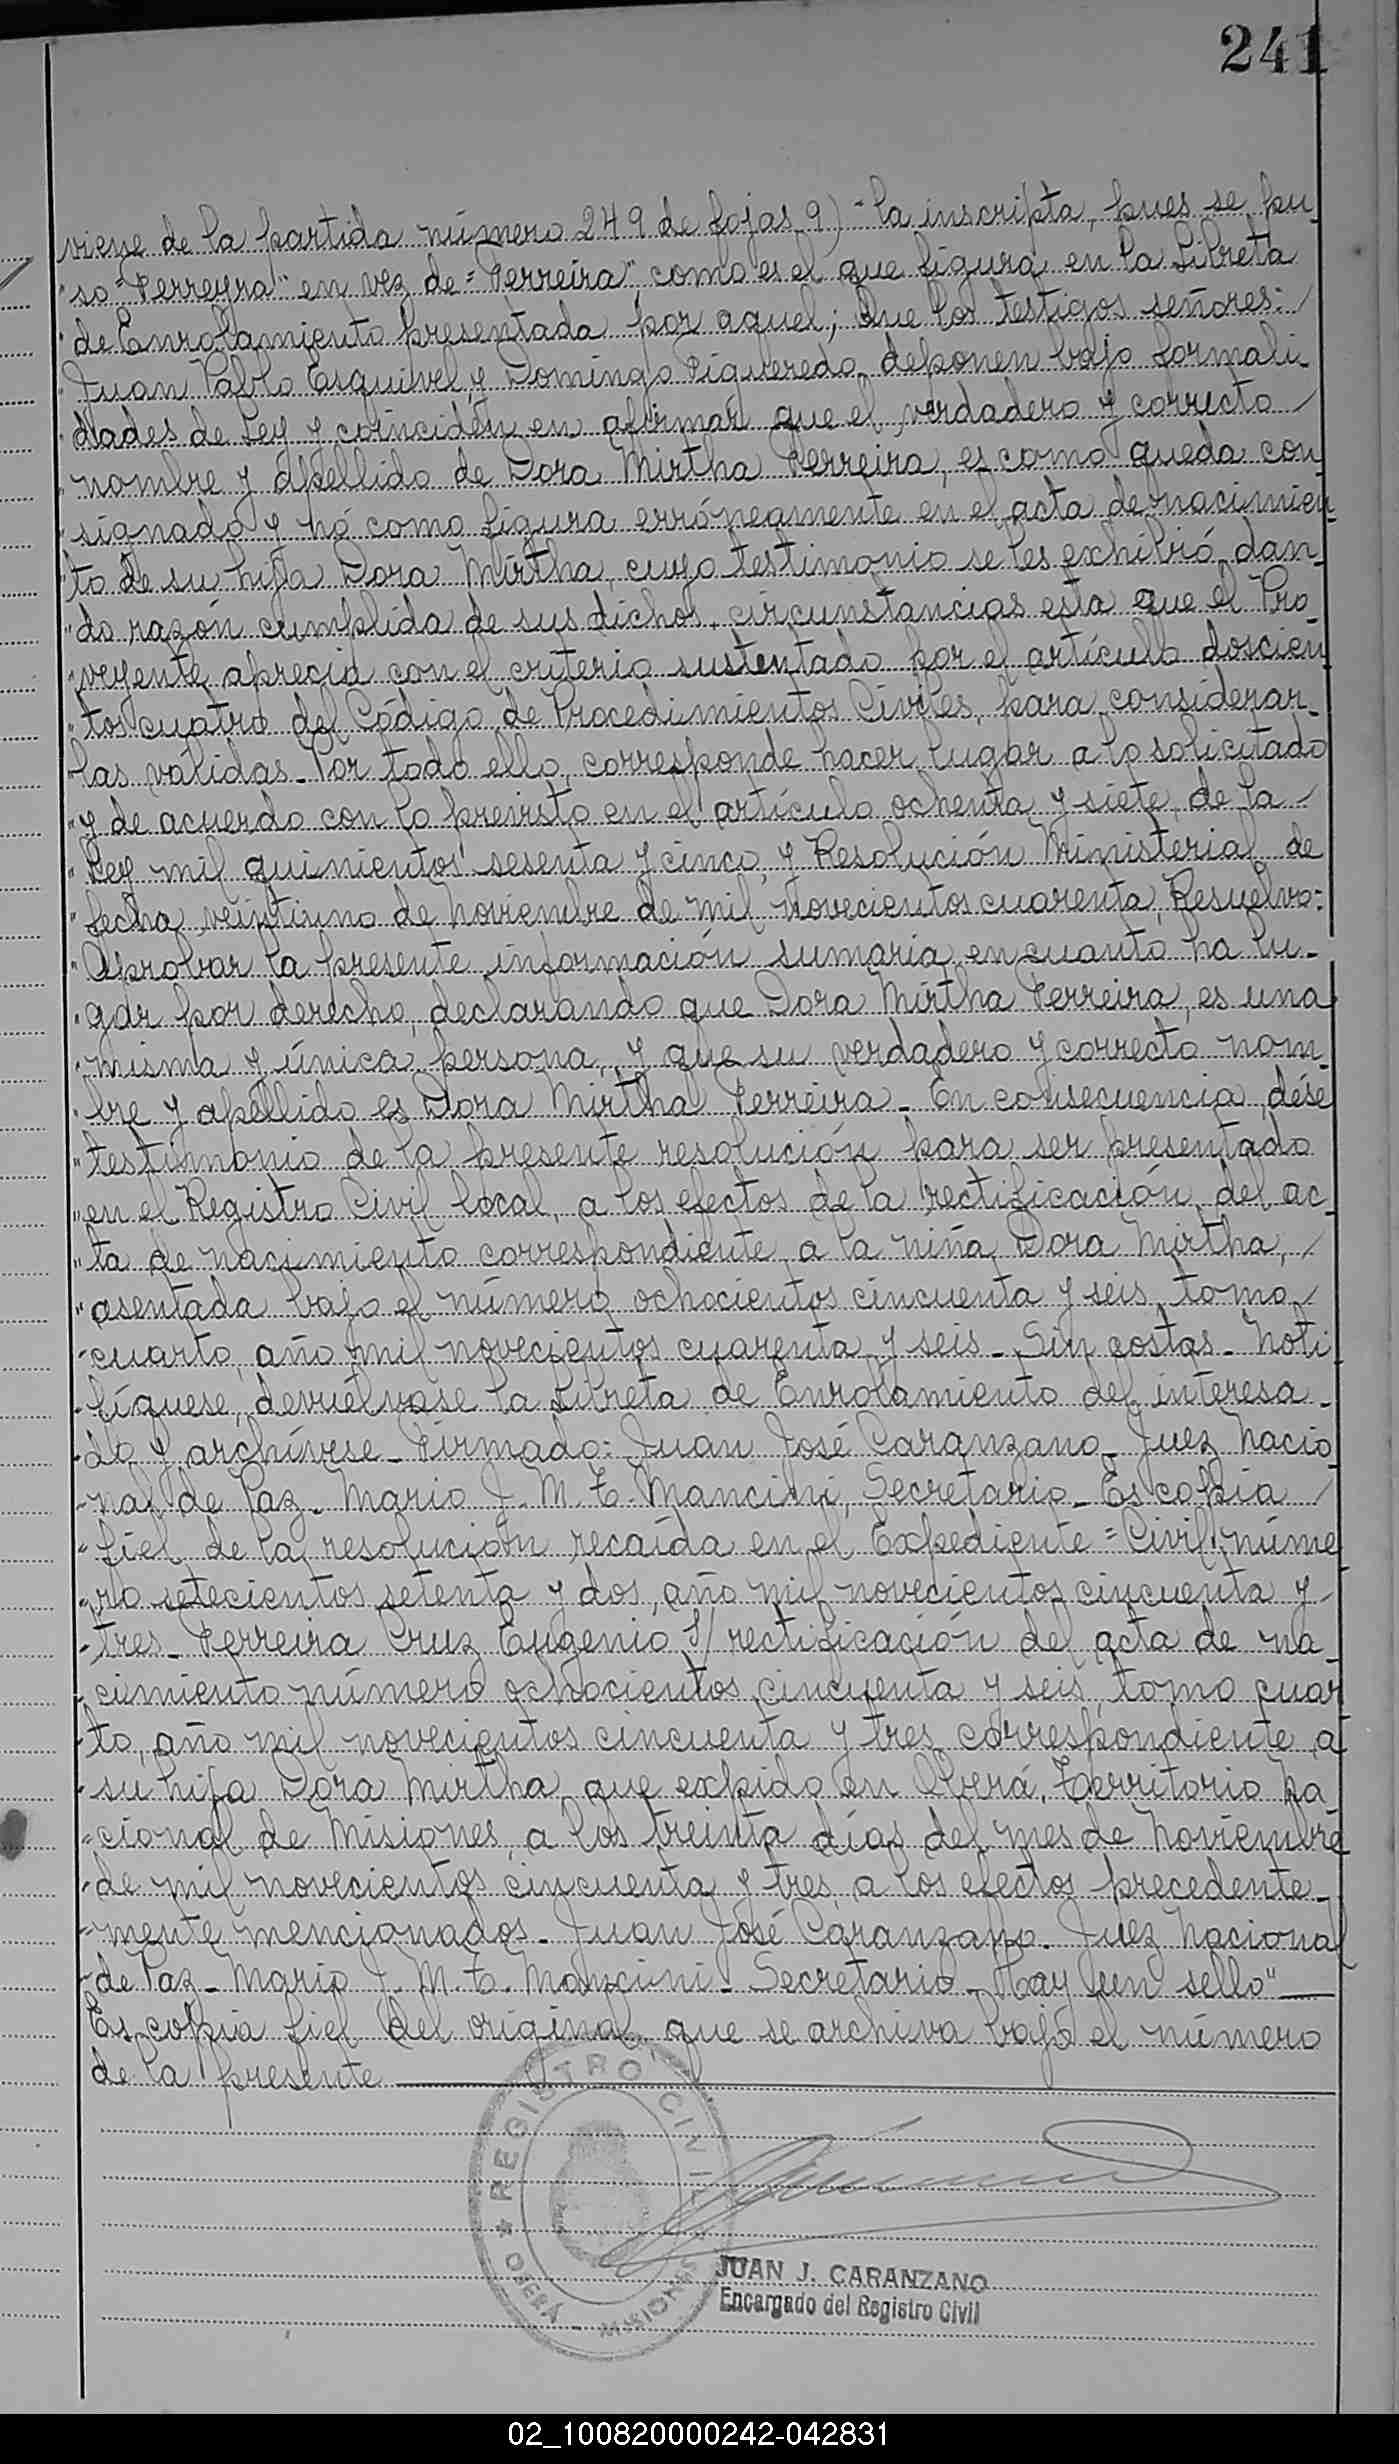 241
viene de la partida número 249 de fojas 9) "la inscripta, pues se pu_
"so "Ferreyra" en vez de "Ferreira", como es el que figura en la Libreta
"de Enrolamiento presentada por aquel; Que los testigos señores: /
"Juan Pablo Esquivel y Domingo Figueredo, deponen bajo formali_
"dades de Ley y coinciden en afirmar que el verdadero y correcto /
"nombre y apellido de Dora Mirtha Ferreira, es como queda con_
"signado y nó como figura erróneamente en el acta de nacimien_
"to de su hija Dora Mirtha, cuyo testimonio se les exhibió, dan_
"do razón cumplida de sus dichos, circunstancias esta que el Pro_
"veyente aprecia con el criterio sustentado por el artículo doscien_
"tos cuatro del Código de Procedimientos Civiles, para considerar_
"las válidas_ Por todo ello, corresponde hacer lugar a lo solicitado
"y de acuerdo con lo previsto en el artículo ochenta y siete de la /
"Ley mil quinientos sesenta y cinco y Resolución Ministerial de
"fecha veintiuno de Noviembre de mil novecientos cuarenta, Resuelvo:
"Aprobar la presente información sumaria en cuanto ha lu_
"gar por derecho, declarando que Dora Mirtha Ferreira, es una
"misma y única persona, y que su verdadero y correcto nom_
"bre y apellido es Dora Mirtha Ferreira_ En consecuencia, dése
"testimonio de la presente resolución para ser presentado
"en el Registro Civil local, a los efectos de la rectificación del ac_
"ta de nacimiento correspondiente a la niña Dora Mirtha, /
"asentada bajo el número ochocientos cincuenta y seis, tomo /
"cuarto, año mil novecientos cuarenta y seis_ Sin costas_ Noti_
"fíquese, devuélvase la Libreta de Enrolamiento del interesa_
"do y archívese_ Firmado: Juan José Caranzano_ Juez Nacio_
"nal de Paz_ Mario J. M. T. Mancini, Secretario_ Es copia /
"fiel de la resolución recaída en el Expediente "Civil" núme_
"ro setecientos setenta y dos, año mil novecientos cincuenta y /
"tres_ Ferreira Cruz Eugenio S/ rectificación del acta de na_
"cimiento número ochocientos cincuenta y seis, tomo cuar_
"to, año mil novecientos cincuenta y tres correspondiente a
"su hija Dora Mirtha, que expido en Oberá, Territorio Na_
"cional de Misiones, a los treinta días del mes de Noviembre
"de mil novecientos cincuenta y tres, a los efectos precedente_
"mente mencionados_ Juan José Caranzano_ Juez Nacional
"de Paz_ Mario J. M. T. Mancini_ Secretario_ Hay un sello"
Es copia fiel del original que se archiva bajo el número
de la presente
REGISTRO CIVIL
* OBERÁ - MISIONES
JUAN J. CARANZANO
Encargado del Registro Civil
02_100820000242-042831